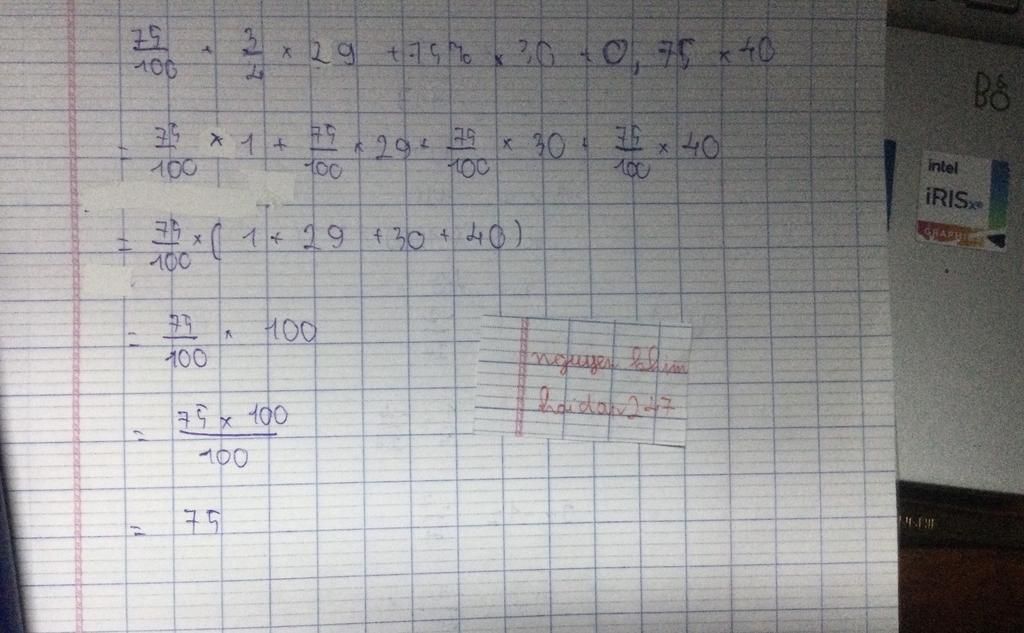 75/100 + 3/4 × 29 + 75% × 30 + 0,75 × 40
= 75/100 × 1 + 75/100 × 29 + 75/100 × 30 + 75/100 × 40
= 75/100 × ( 1 + 29 + 30 + 40 )
= 75/100 × 100
= 75 × 100 / 100
= 75
nguyen khim
hoidap247
Bố
intel
iRISxe
GRAPHICS